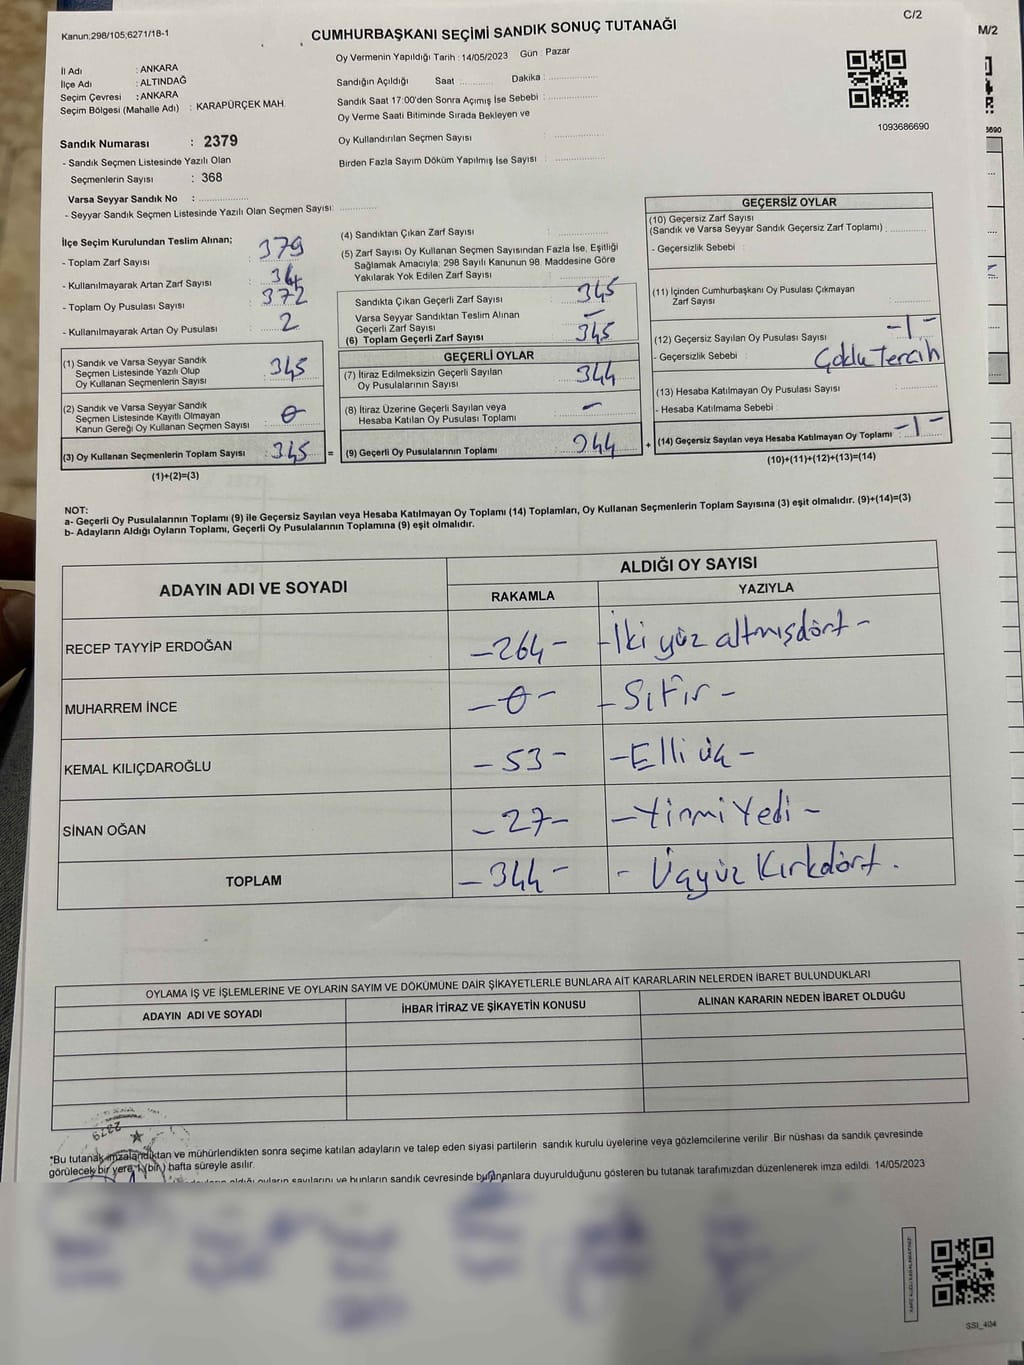 C/2
M/2
Kanun;298/105;6271/18-1
CUMHURBAŞKANI SEÇİMİ SANDIK SONUÇ TUTANAĞI
Oy Vermenin Yapıldığı Tarih : 14/05/2023 Gün : Pazar
İl Adı : ANKARA
İlçe Adı : ALTINDAĞ
Seçim Çevresi : ANKARA
Seçim Bölgesi (Mahalle Adı) : KARAPÜRÇEK MAH.
Sandığın Açıldığı Saat ............ Dakika : ............
Sandık Saat 17:00'den Sonra Açımış İse Sebebi : ............
Oy Verme Saati Bitiminde Sırada Bekleyen ve
Oy Kullandırılan Seçmen Sayısı : ............
Birden Fazla Sayım Döküm Yapılmış İse Sayısı : ............
1093686690
3690
Sandık Numarası : 2379
- Sandık Seçmen Listesinde Yazılı Olan
Seçmenlerin Sayısı : 368
Varsa Seyyar Sandık No : ............
- Seyyar Sandık Seçmen Listesinde Yazılı Olan Seçmen Sayısı: ............
İlçe Seçim Kurulundan Teslim Alınan;
- Toplam Zarf Sayısı : 379
- Kullanılmayarak Artan Zarf Sayısı : 34
- Toplam Oy Pusulası Sayısı : 372
- Kullanılmayarak Artan Oy Pusulası : 2
(1) Sandık ve Varsa Seyyar Sandık
Seçmen Listesinde Yazılı Olup
Oy Kullanan Seçmenlerin Sayısı : 345
(2) Sandık ve Varsa Seyyar Sandık
Seçmen Listesinde Kayıtlı Olmayan
Kanun Gereği Oy Kullanan Seçmen Sayısı : 0
(3) Oy Kullanan Seçmenlerin Toplam Sayısı : 345 =
(1)+(2)=(3)
(4) Sandıktan Çıkan Zarf Sayısı : ............
(5) Zarf Sayısı Oy Kullanan Seçmen Sayısından Fazla İse, Eşitliği
Sağlamak Amacıyla; 298 Sayılı Kanunun 98. Maddesine Göre
Yakılarak Yok Edilen Zarf Sayısı : ............
Sandıkta Çıkan Geçerli Zarf Sayısı : 345
Varsa Seyyar Sandıktan Teslim Alınan
Geçerli Zarf Sayısı : –
(6) Toplam Geçerli Zarf Sayısı : 345
GEÇERLİ OYLAR
(7) İtiraz Edilmeksizin Geçerli Sayılan
Oy Pusulalarının Sayısı : 344
(8) İtiraz Üzerine Geçerli Sayılan veya
Hesaba Katılan Oy Pusulası Toplamı : –
(9) Geçerli Oy Pusulalarının Toplamı : 344 +
GEÇERSİZ OYLAR
(10) Geçersiz Zarf Sayısı
(Sandık ve Varsa Seyyar Sandık Geçersiz Zarf Toplamı) : ............
- Geçersizlik Sebebi :
(11) İçinden Cumhurbaşkanı Oy Pusulası Çıkmayan
Zarf Sayısı : ............
(12) Geçersiz Sayılan Oy Pusulası Sayısı : -1-
- Geçersizlik Sebebi : Çoklu Tercih
(13) Hesaba Katılmayan Oy Pusulası Sayısı : ............
- Hesaba Katılmama Sebebi :
(14) Geçersiz Sayılan veya Hesaba Katılmayan Oy Toplamı -1-
(10)+(11)+(12)+(13)=(14)
NOT:
a- Geçerli Oy Pusulalarının Toplamı (9) ile Geçersiz Sayılan veya Hesaba Katılmayan Oy Toplamı (14) Toplamları, Oy Kullanan Seçmenlerin Toplam Sayısına (3) eşit olmalıdır. (9)+(14)=(3)
b- Adayların Aldığı Oyların Toplamı, Geçerli Oy Pusulalarının Toplamına (9) eşit olmalıdır.
ADAYIN ADI VE SOYADI
ALDIĞI OY SAYISI
RAKAMLA YAZIYLA
RECEP TAYYİP ERDOĞAN -264- -İki yüz altmışdört-
MUHARREM İNCE -0- -Sıfır-
KEMAL KILIÇDAROĞLU -53- -Elli üç-
SİNAN OĞAN -27- -Yirmi Yedi-
TOPLAM -344- - Üçyüz Kırkdört.
OYLAMA İŞ VE İŞLEMLERINE VE OYLARIN SAYIM VE DÖKÜMÜNE DAİR ŞİKAYETLERLE BUNLARA AİT KARARLARIN NELERDEN İBARET BULUNDUKLARI
ADAYIN ADI VE SOYADI İHBAR İTİRAZ VE ŞİKAYETİN KONUSU ALINAN KARARIN NEDEN İBARET OLDUĞU
2379
*Bu tutanak imzalandıktan ve mühürlendikten sonra seçime katılan adayların ve talep eden siyasi partilerin sandık kurulu üyelerine veya gözlemcilerine verilir. Bir nüshası da sandık çevresinde
görülecek bir yere 1 (bir) hafta süreyle asılır.
aldığı oyların sayılarını ve bunların sandık çevresinde bulunanlara duyurulduğunu gösteren bu tutanak tarafımızdan düzenlenerek imza edildi. 14/05/2023
SSI_404